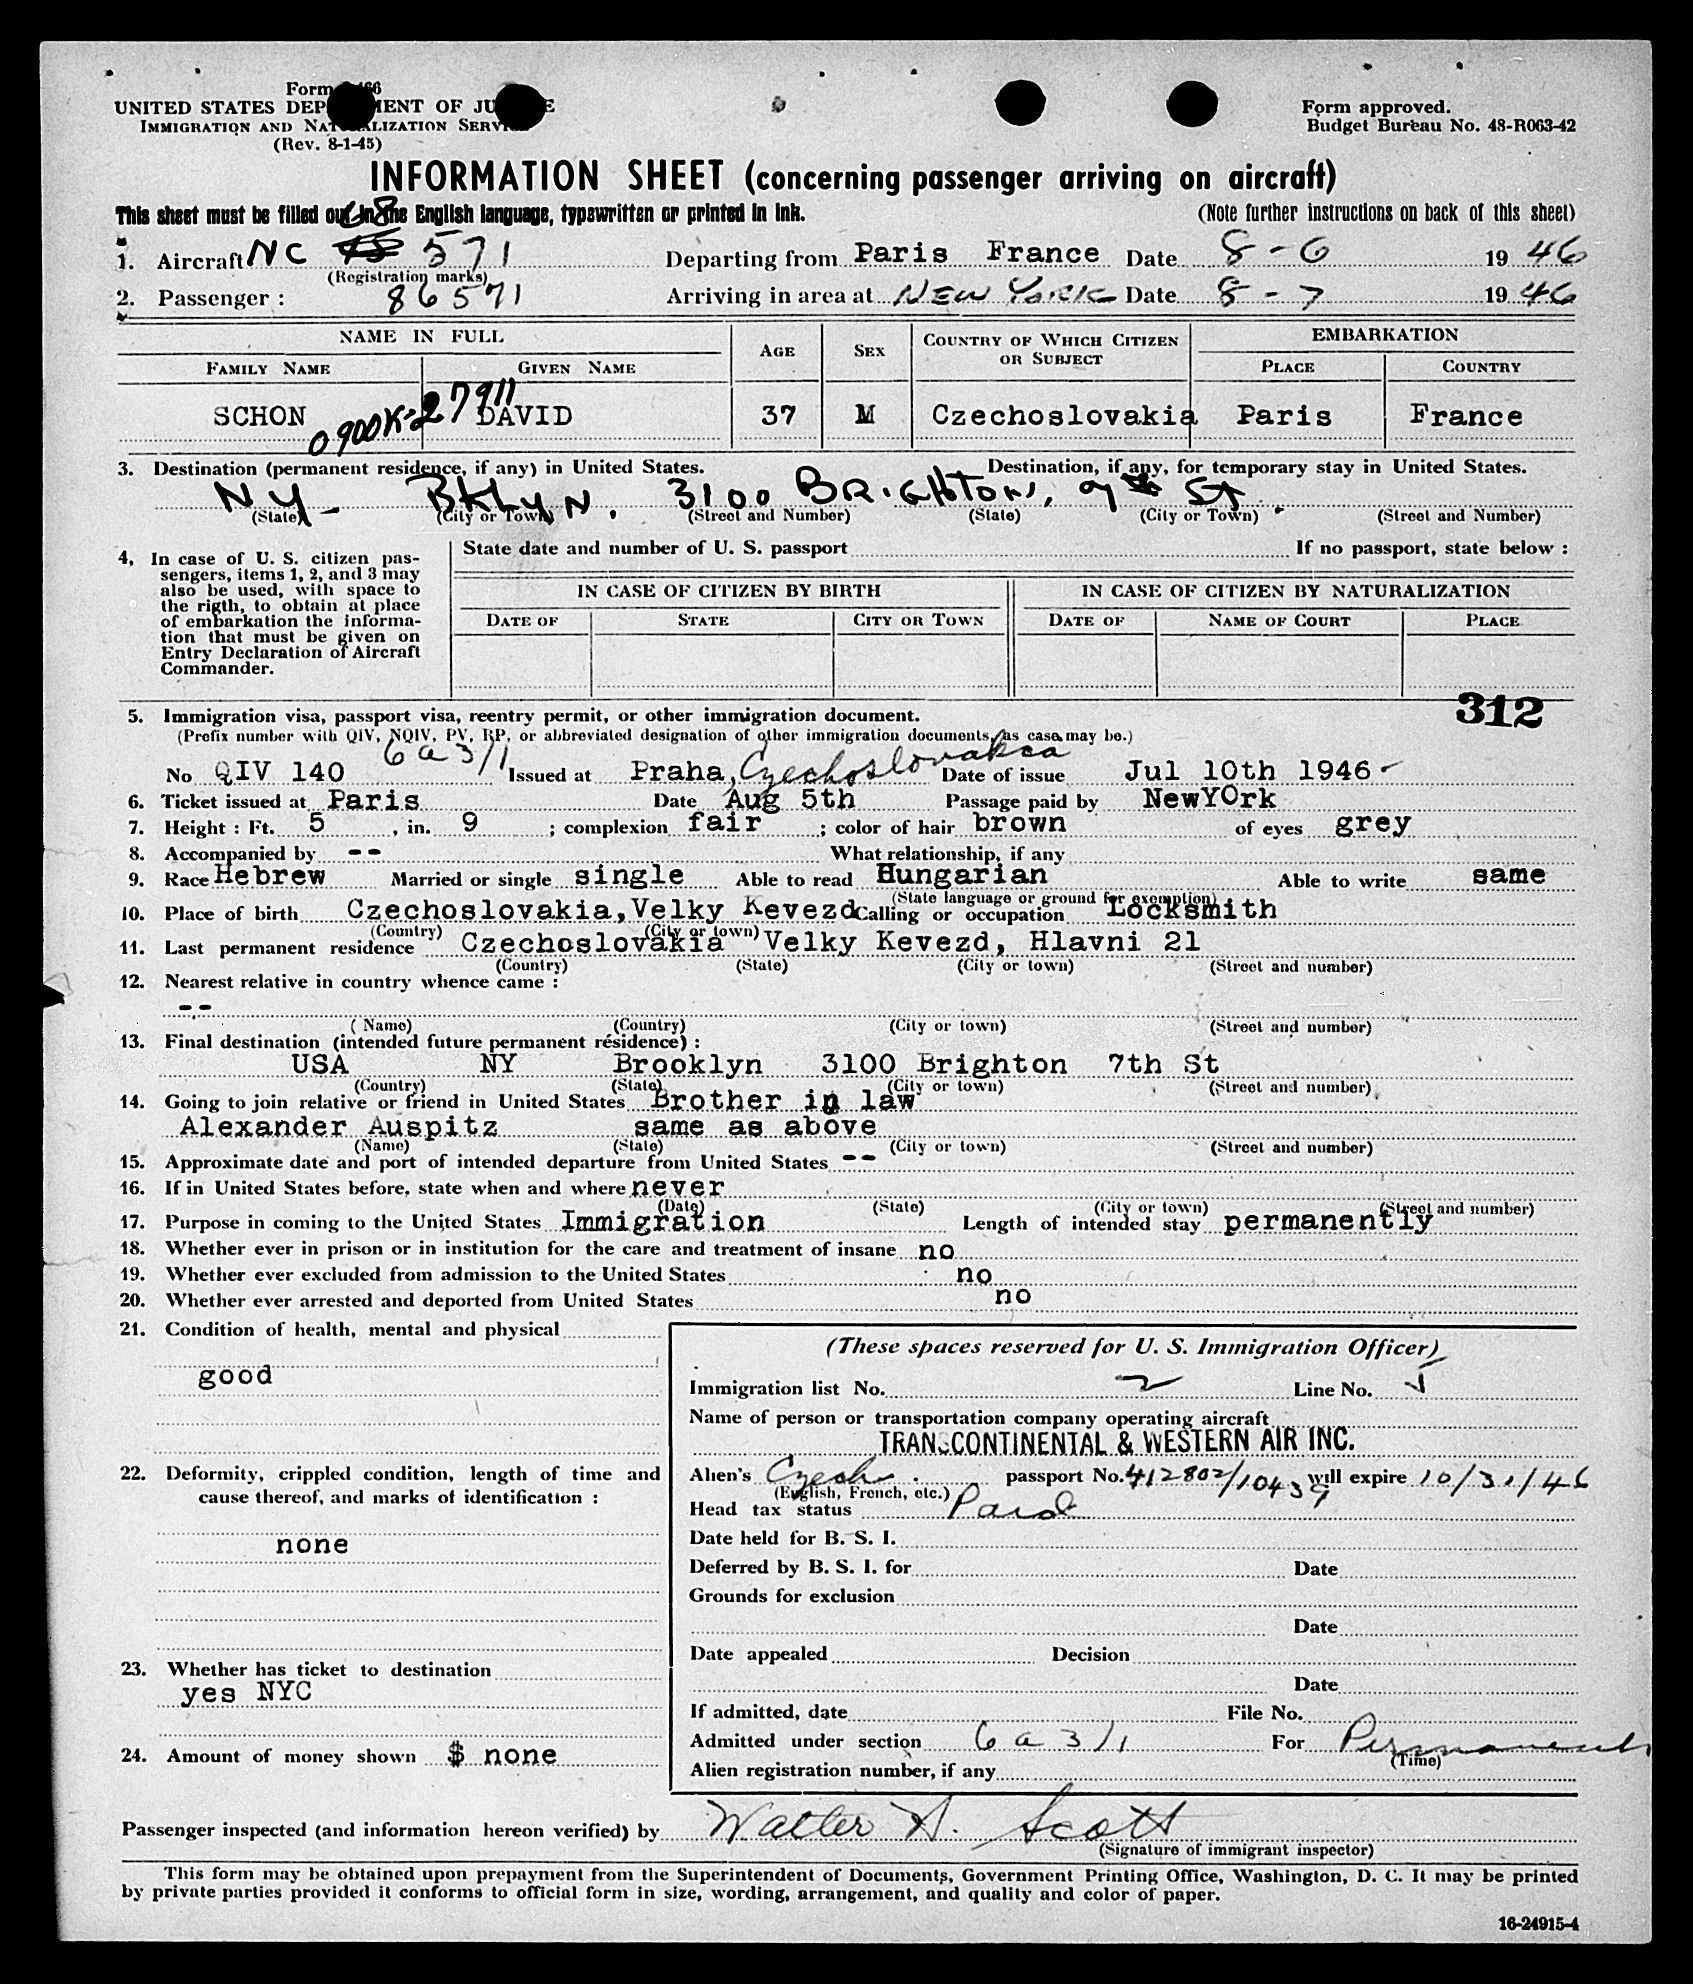 Form 466
UNITED STATES DEPARTMENT OF JUSTICE
IMMIGRATION AND NATURALIZATION SERVICE
(Rev. 8-1-45)
Form approved.
Budget Bureau No. 43-R063-42
INFORMATION SHEET (concerning passenger arriving on aircraft)
This sheet must be filled out in the English language, typewritten or printed in ink.
(Note further instructions on back of this sheet)
1. Aircraft NC 571 Departing from Paris France Date 8-6 1946
(Registration marks)
2. Passenger : 86571 Arriving in area at NEW YORK Date 8-7 1946
NAME IN FULL AGE SEX COUNTRY OF WHICH CITIZEN OR SUBJECT EMBARKATION
FAMILY NAME GIVEN NAME PLACE COUNTRY
0900K-27911
SCHON DAVID 37 M Czechoslovakia Paris France
3. Destination (permanent residence, if any) in United States. Destination, if any, for temporary stay in United States.
NY - BKLYN. 3100 BRIGHTON, 7th ST.
(State) (City or Town) (Street and Number) (State) (City or Town) (Street and Number)
4, In case of U. S. citizen pas-
sengers, items 1, 2, and 3 may
also be used, with space to
the rigth, to obtain at place
of embarkation the informa-
tion that must be given on
Entry Declaration of Aircraft
Commander.
State date and number of U. S. passport If no passport, state below :
IN CASE OF CITIZEN BY BIRTH IN CASE OF CITIZEN BY NATURALIZATION
DATE OF STATE CITY OR TOWN DATE OF NAME OF COURT PLACE
312
5. Immigration visa, passport visa, reentry permit, or other immigration document.
(Prefix number with QIV, NQIV, PV, RP, or abbreviated designation of other immigration documents, as case may be.)
6a3/1
No QIV 140 Issued at Praha, Czechoslovakia Date of issue Jul 10th 1946
6. Ticket issued at Paris Date Aug 5th Passage paid by NewYOrk
7. Height : Ft. 5 , in. 9 ; complexion fair ; color of hair brown of eyes grey
8. Accompanied by -- What relationship, if any
9. Race Hebrew Married or single single Able to read Hungarian Able to write same
(State language or ground for exemption)
10. Place of birth Czechoslovakia,Velky Kevezd Calling or occupation Locksmith
(Country) (City or town)
11. Last permanent residence Czechoslovakia Velky Kevezd, Hlavni 21
(Country) (State) (City or town) (Street and number)
12. Nearest relative in country whence came :
--
(Name) (Country) (City or town) (Street and number)
13. Final destination (intended future permanent résidence) :
USA NY Brooklyn 3100 Brighton 7th St
(Country) (State) (City or town) (Street and number)
14. Going to join relative or friend in United States Brother in law
Alexander Auspitz same as above
(Name) (State) (City or town) (Street and number)
15. Approximate date and port of intended departure from United States --
16. If in United States before, state when and where never
(Date) (State) (City or town) (Street and number)
17. Purpose in coming to the United States Immigration Length of intended stay permanently
18. Whether ever in prison or in institution for the care and treatment of insane no
19. Whether ever excluded from admission to the United States no
20. Whether ever arrested and deported from United States no
21. Condition of health, mental and physical
good
22. Deformity, crippled condition, length of time and
cause thereof, and marks of identification :
none
23. Whether has ticket to destination
yes NYC
24. Amount of money shown $ none
(These spaces reserved for U. S. Immigration Officer)
Immigration list No. 2 Line No. 5
Name of person or transportation company operating aircraft
TRANSCONTINENTAL & WESTERN AIR INC.
Alien's Czech. passport No. 412802/10439 will expire 10/31/46
(English, French, etc.)
Head tax status Paid
Date held for B. S. I.
Deferred by B. S. I. for Date
Grounds for exclusion
Date
Date appealed Decision
Date
If admitted, date File No.
Admitted under section 6a3/1 For Permanent
(Time)
Alien registration number, if any
Passenger inspected (and information hereon verified) by Walter H. Scott
(Signature of immigrant inspector)
This form may be obtained upon prepayment from the Superintendent of Documents, Government Printing Office, Washington, D. C. It may be printed
by private parties provided it conforms to official form in size, wording, arrangement, and quality and color of paper.
16-24915-4